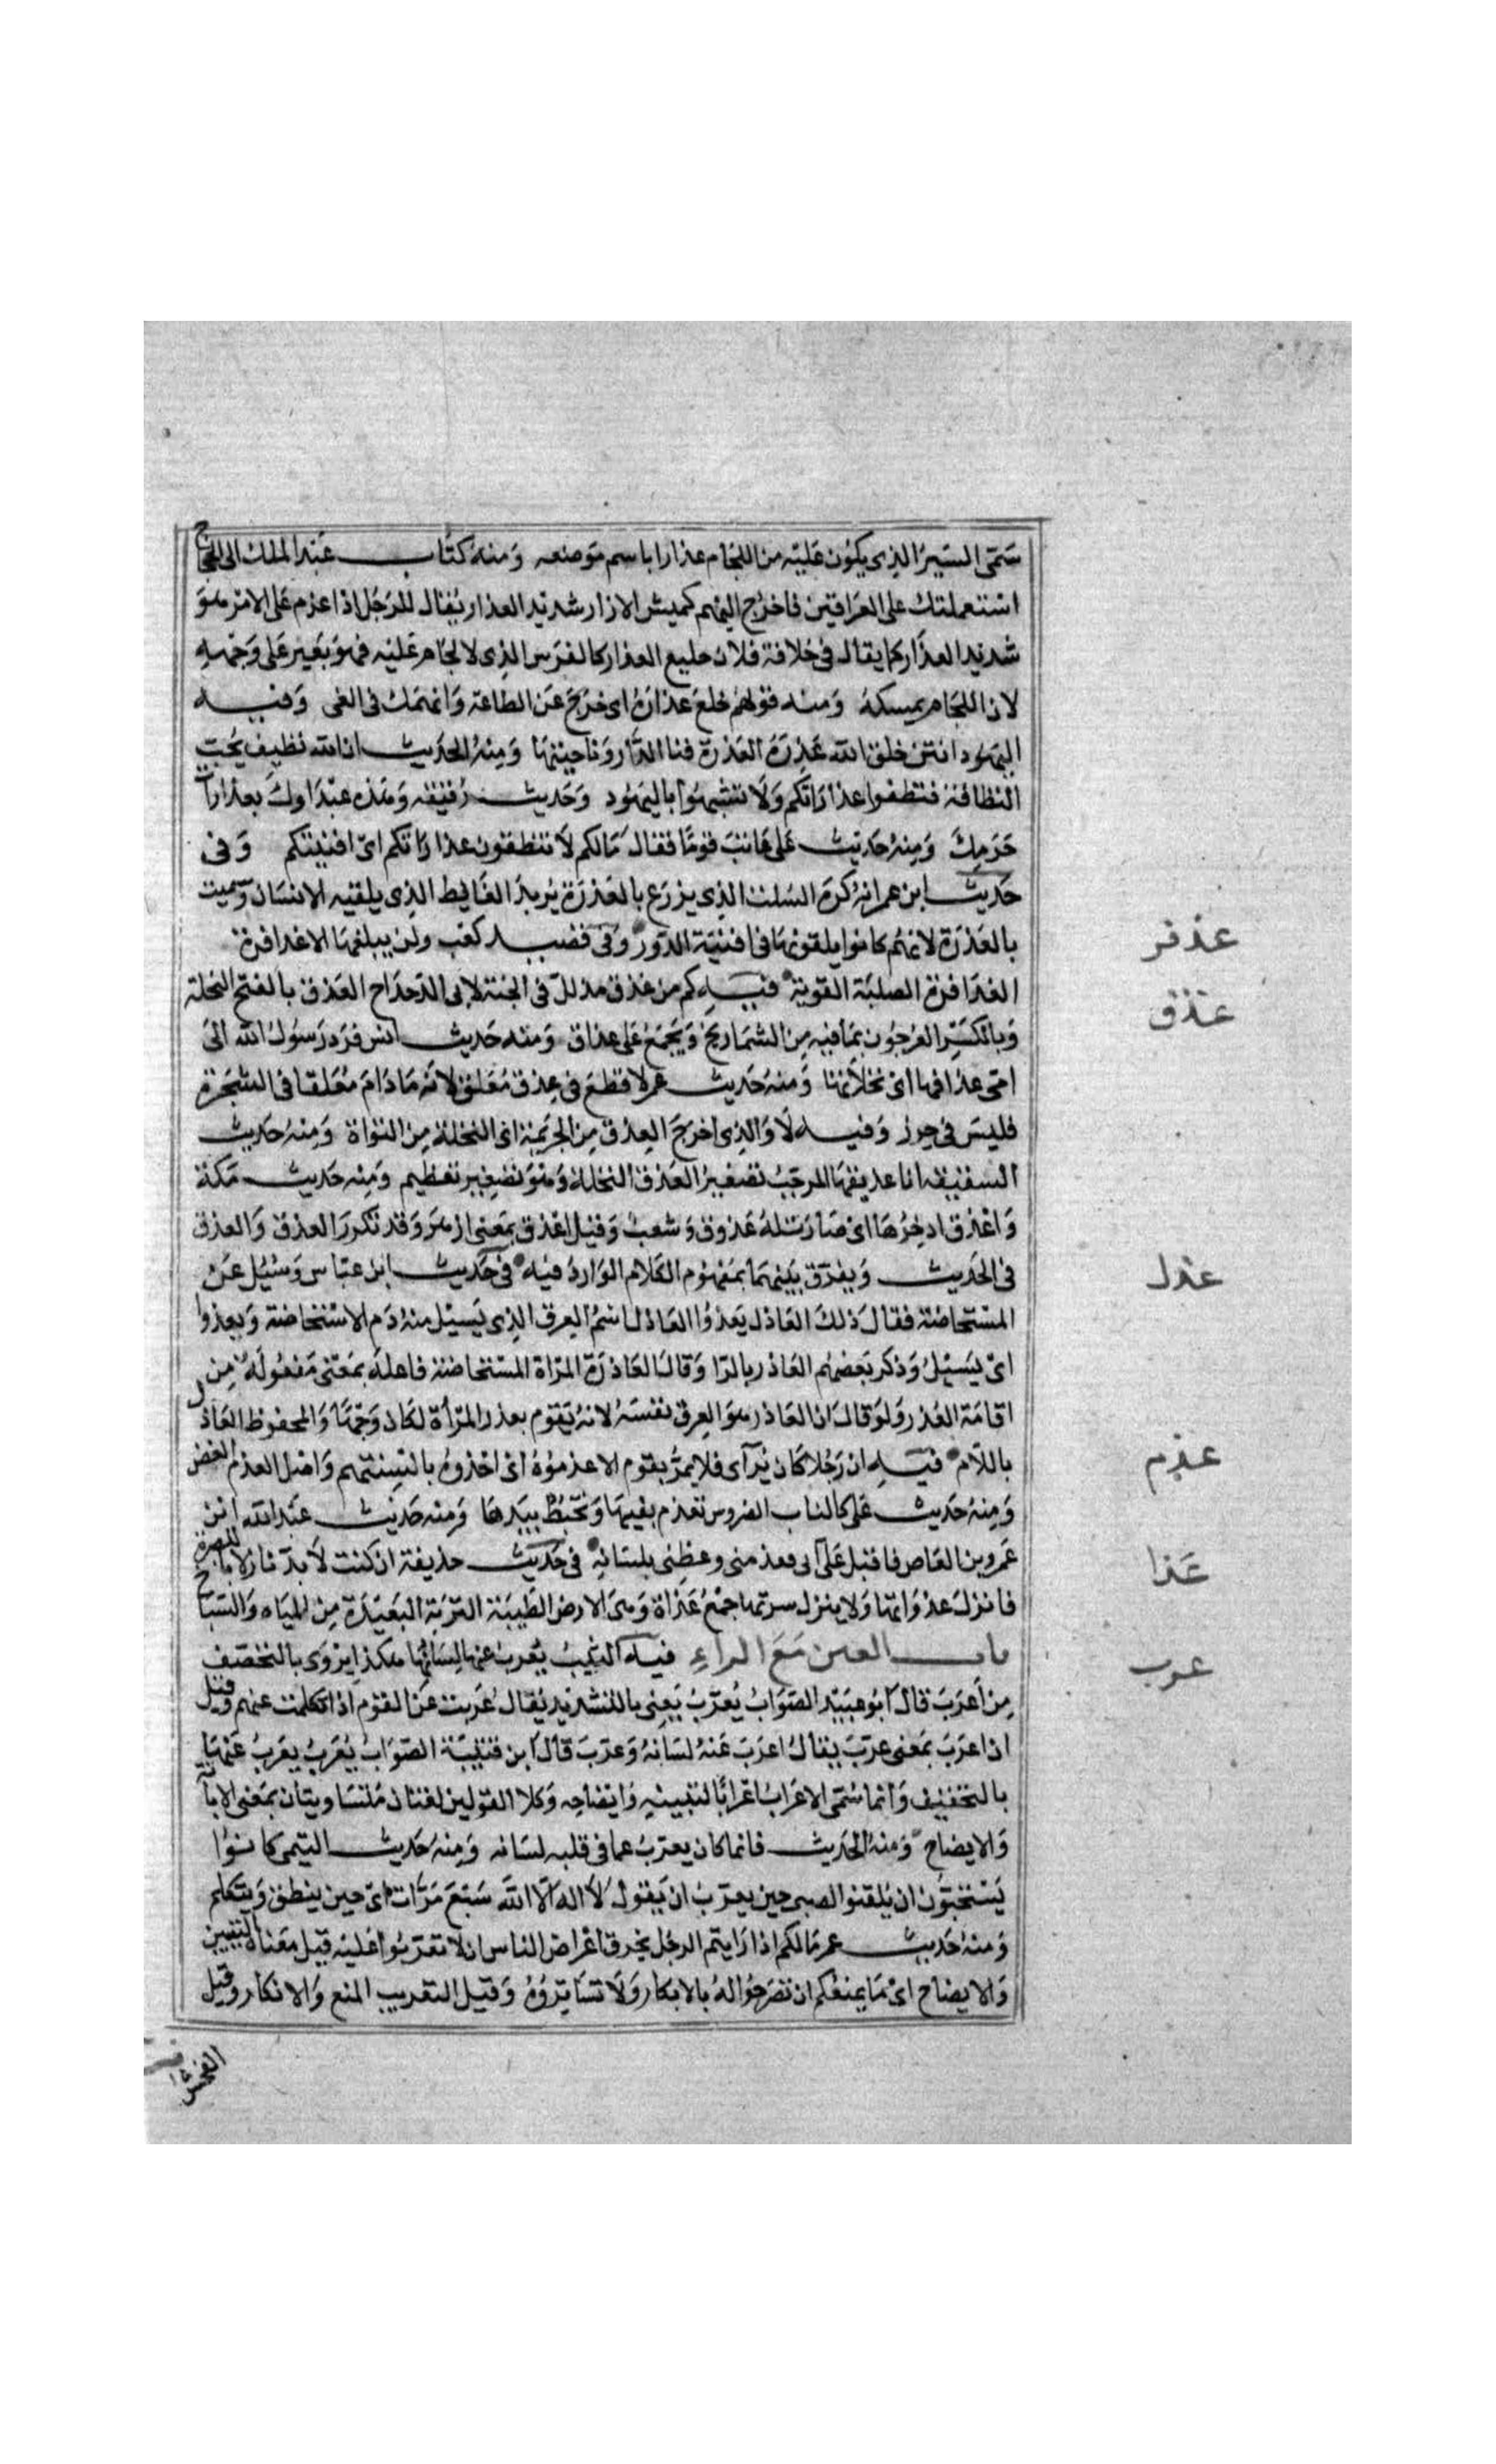 سمى السير الذى يكون عليه من اللجام عذارا باسم موضعه ومنه كتاب عبد الملك الى الحجاج
استعملتك على العراقين فاخرج اليهم كميش الازار شديد العذار يقال للرجل اذا عزم على الامر هو
شديد العذار كما يقال فى خلافة فلان خليع العذار كالفرس الذى لا لجام عليه فهو يعير على وجهه
لان اللجام يمسكه ومنه قولهم خلع عذاره اى خرج عن الطاعة وانهمك فى الغى وفيه
اليهود انتن خلق الله عذرة العذرة فنا الدار وناحيتها ومنه الحديث ان الله نظيف يحب
النظافة فنظفوا عذراتكم ولا تشبهوا باليهود وحديث رقيقه وهذه عبداوك بعذرات
حرمك ومنه حديث على عاتب قوما فقال مالكم لا تنظفون عذراتكم اى افنيتكم وفى
حديث ابن عمر انه كره السلت الذى يزرع بالعذرة يريد الغايط الذى يلقيه الانسان وسميت
بالعذرة لانهم كانوا يلقونها فى افنية الدور وفى قصيد كعب ولن يبلغها الا عذافرة
العذافرة الصلبة القوية فيه كم من عذق مذلل فى الجنة لابى الدحداح العذق بالفتح النخلة
وبالكسر العرجون بما فيه من الشماريخ ويجمع على عذاق ومنه حديث انس فرد رسول الله الى
امى عذاقها اى نخلاتها ومنه حديث عمر لا قطع فى عذق معلق لانه ما دام معلقا فى الشجرة
فليس فى حرز وفيه لا والذى اخرج العذق من الجريمة اى النخلة من النواة ومنه حديث
السقيفه انا عذيقها المرجب تصغير العذق النخلة وهو تصغير تعظيم ومنه حديث مكة
واعذق اذخرها اى صارت له عذوق وشعب وقيل اعذق بمعنى ازهر وقد تكرر العذق والعذق
فى الحديث ويفرق بينهما بمفهوم الكلام الوارد فيه فى حديث ابن عباس وسئل عن
المستحاضة فقال ذلك العاذل يعذوا العاذل اسم العرق الذى يسيل منه دم الاستحاضة ويعذوا
اى يسيل وذكر بعضهم العاذر بالرا وقال العاذرة المراة المستحاضة فاعله بمعنى مفعوله من
اقامة العذر ولو قال ان العاذر هو العرق نفسه لانه يقوم بعذر المرأة لكان وجها والمحفوظ العاذل
باللام فيه ان رجلا كان يرآى فلا يمر بقوم الا عذموه اى اخذوه بالسنتهم واصل العذم العض
ومنه حديث على كالناب الضروس تعذم بفيها وتخبط بيدها ومنه حديث عبد الله ابن
عمرو بن العاص فاقبل على ابى فعذمنى وعظنى بلسانه فى حديث حذيفة ان كنت لا بد نازلا بالبصرة
فانزل عذواتها ولا ينزل سرتها جمع عذاة وهى الارض الطيبة التربة البعيدة من المياه والسباخ
باب العين مع الراء فيه الثيب يعرب عنها لسانها هكذا يروى بالتخفيف
من اعرب قال ابو عبيد الصواب يعرب يعنى بالتشديد يقال عربت عن القوم اذا تكلمت عنهم وقيل
ان اعرب بمعنى عرب يقال اعرب عنه لسانه وعرب قال ابن قتيبة الصواب يعرب يعرب عنها
بالتخفيف وانما سمى الاعراب اعرابا لتبيينه وايضاحه وكلا القولين لغتان متساويتان بمعنى الابانة
والايضاح ومنه الحديث فانما كان يعرب عما فى قلبه لسانه ومنه حديث التيمى كانوا
يستحبون ان يلقنوا الصبى حين يعرب ان يقول لا اله الا الله سبع مرات اى حين ينطق ويتكلم
ومنه حديث عمر مالكم اذا رايتم الرجل يخرق اعراض الناس ان لا تعربوا عليه قيل معناه التبيين
والايضاح اى ما يمنعكم ان تصرحوا له بالانكار ولا تساتروه وقيل التعريب المنع والانكار وقيل
الفحش
عذفر
عذق
عذل
عذم
عذا
عرب